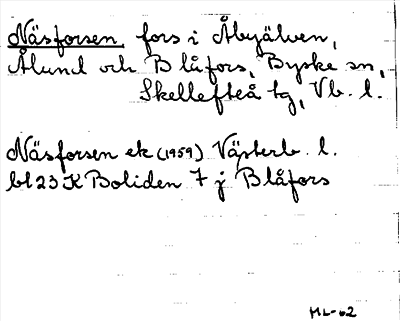 Näsforsen, fors i Åbyälven,
Ålund och Blåfors, Byske sn,
Skellefteå tg, Vb. l.
Näsforsen ek (1959) Västerb. l.
bl 23 K Boliden 7 j Blåfors
ML-62